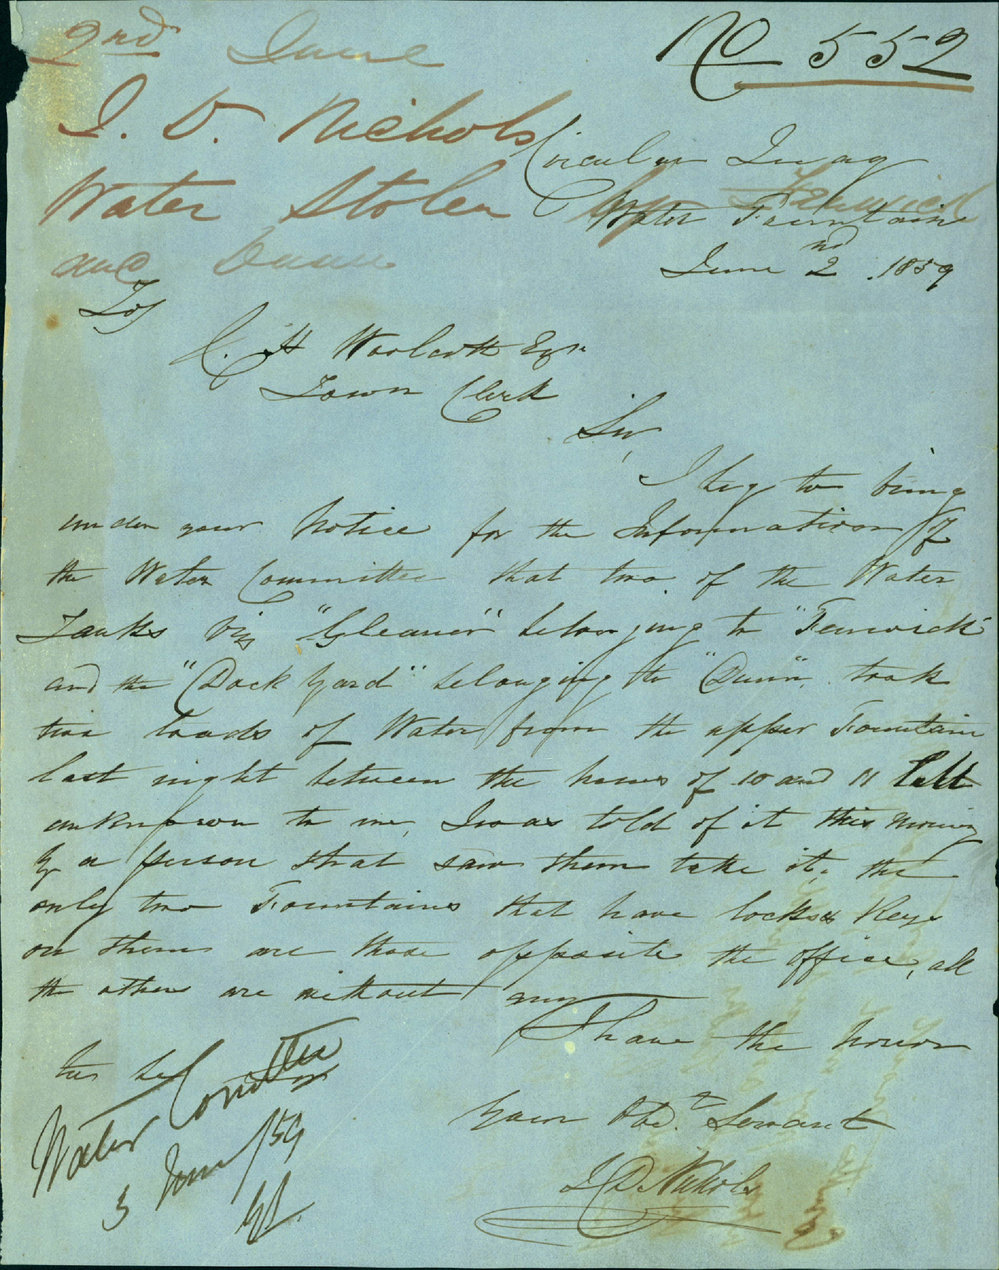 2nd June
No 552
J. D. Nichols
Water Stolen
by Fenwick
and Dunn
Circular Quay
Water Fountain
June 2nd 1859
To/
C. H Woolcott Esqr
Town Clerk
Sir,
I beg to bring
under your Notice for the Information of
the Water Committee that two of the Water
Tanks viz "Gleaner" belonging to "Fenwick"
and the "Dock Yard" belonging to "Dunn" took
two loads of Water from the upper Fountain
last night between the hours of 10 and 11
unknown to me, I was told of it this morning
by a person that saw them take it, the
only two Fountains that have locks & Keys
on them are those opposite the office, all
the others are without any
I have the honor
to be
Your Obdt Servant
J D Nichols
Water Comttee
3 June /59